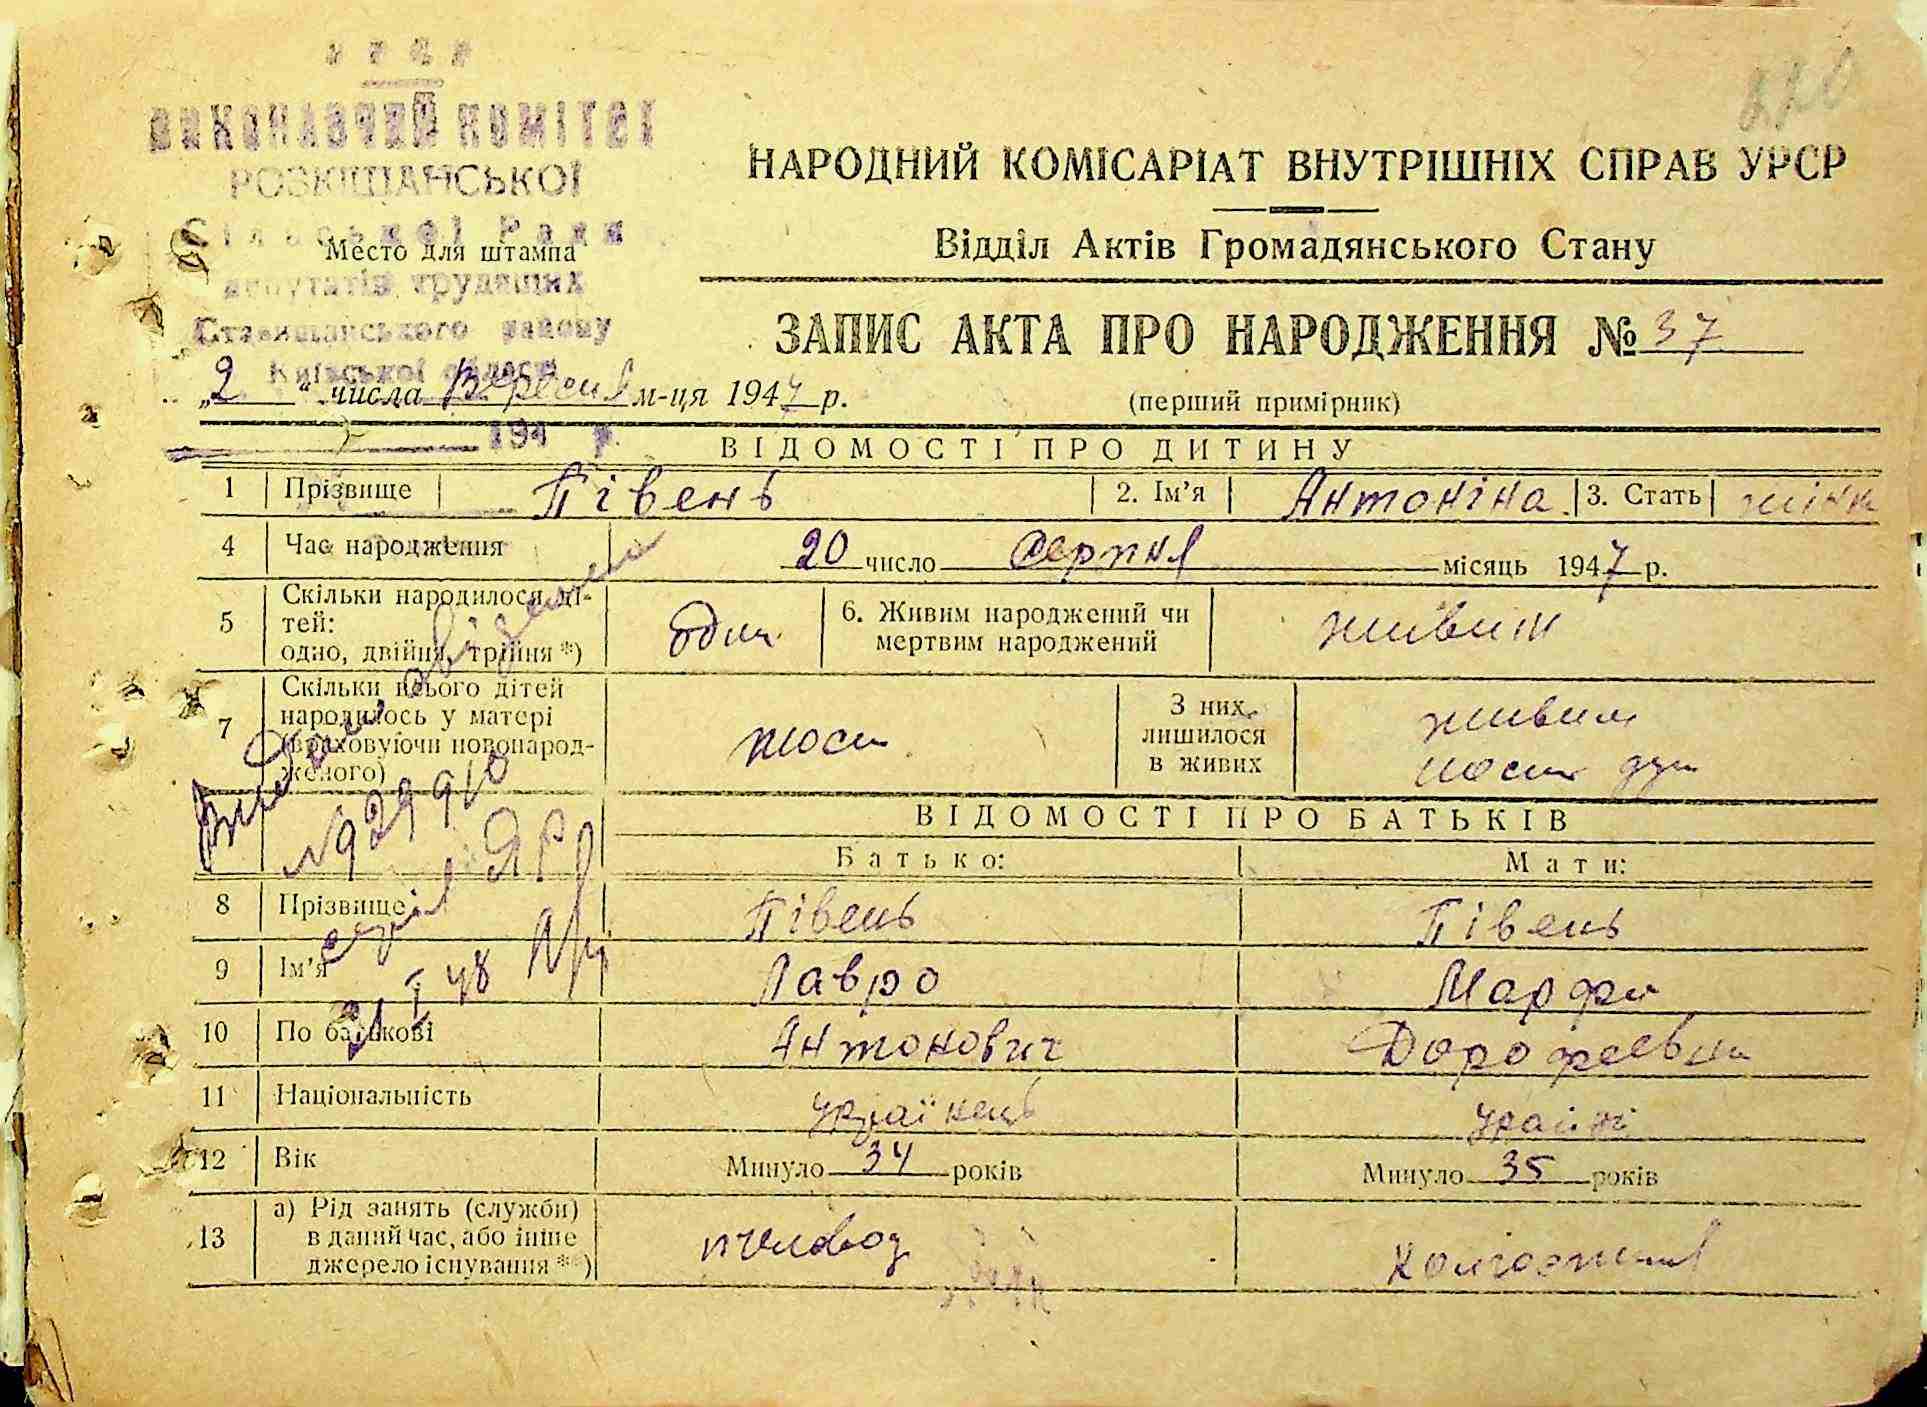 УРСР
ВИКОНАВЧИЙ КОМІТЕТ
РОЗКІШАНСЬКОЇ
Сільської Ради
Место для штампа
депутатів трудящих
Ставищанського району
Київської області
194 р.
220
НАРОДНИЙ КОМІСАРІАТ ВНУТРІШНІХ СПРАВ УРСР
Відділ Актів Громадянського Стану
ЗАПИС АКТА ПРО НАРОДЖЕННЯ № 37
„2“ числа Вересня м-ця 1947 р.
(перший примірник)
ВІДОМОСТІ ПРО ДИТИНУ
1 Прізвище Півень 2. Ім’я Антоніна 3. Стать жінк
4 Час народження 20 число Серпня місяць 1947 р.
5 Скільки народилося ді-
тей:
одно, двійня, трійня *) одна 6. Живим народжений чи
мертвим народжений живим
7 Скільки всього дітей
народилось у матері
(враховуючи новонарод-
женого) З них
лишилося
в живих живими
Видано свідоцтво
№ 929910
серія ЯР
21 I 48
ВІДОМОСТІ ПРО БАТЬКІВ
Батько: Мати:
8 Прізвище Півень Півень
9 Ім’я Лавро Марфа
10 По батькові Антонович Дорофеевна
11 Національність українець україн
12 Вік Минуло 34 років Минуло 35 років
13 а) Рід занять (служби)
в даний час, або інше
джерело існування **) пчеловод колгоспниця